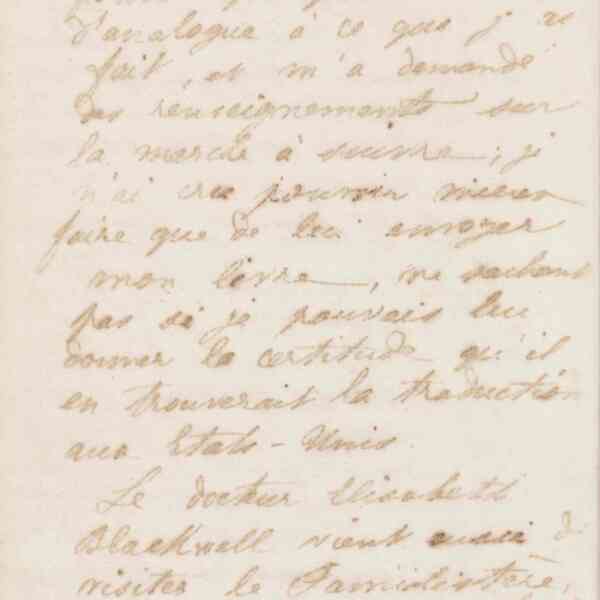 d'analogue à ce que j'ai
fait, et m'a demandé
des renseignements sur
la marche à suivre ; je
n'ai cru pouvoir mieux
faire que de lui envoyer
mon livre, ne sachant
pas si je pouvais lui
donner la certitude qu'il
en trouverait la traduction
aux Etats-Unis.
Le docteur Elisabeth
Blackwell vient aussi de
visiter le Familistère,